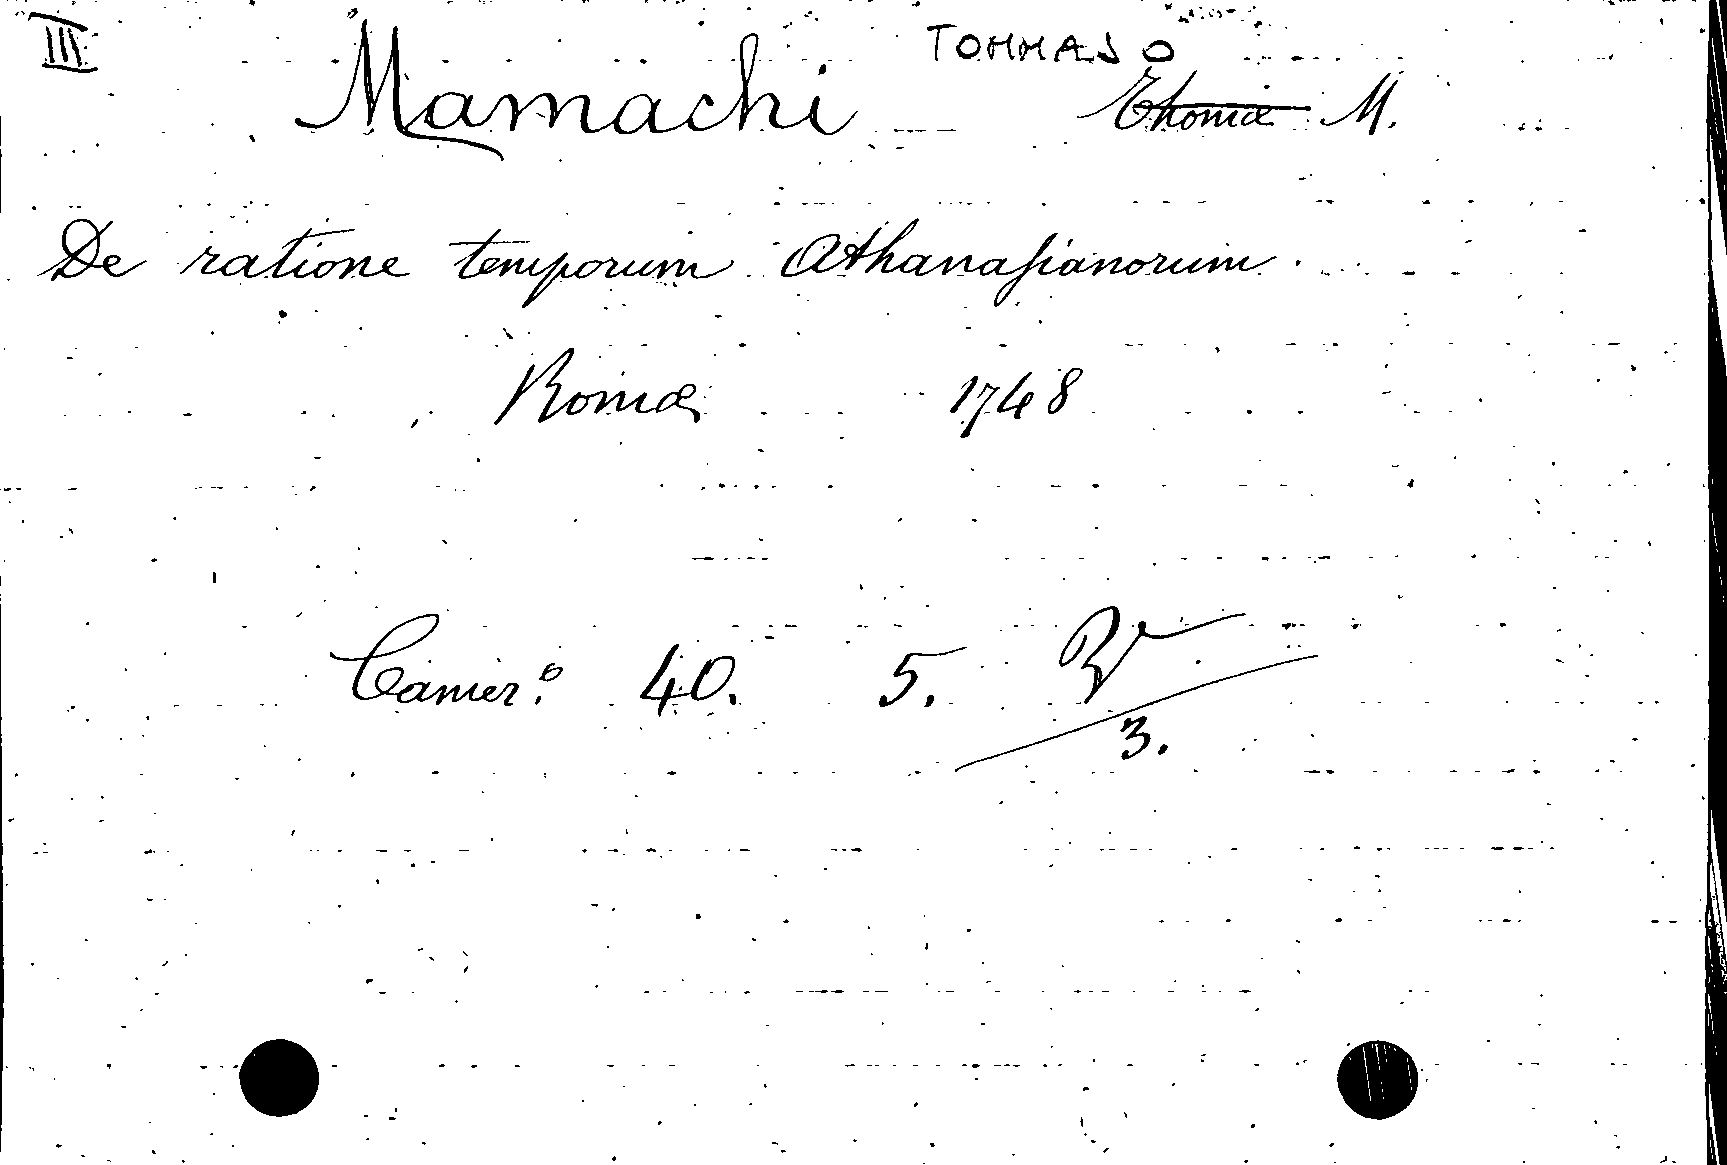 III
Mamachi TOMMASO
Thomæ M.
De ratione temporum Athanasianorum
Romæ 1748
Camer.º 40. 5.
3.